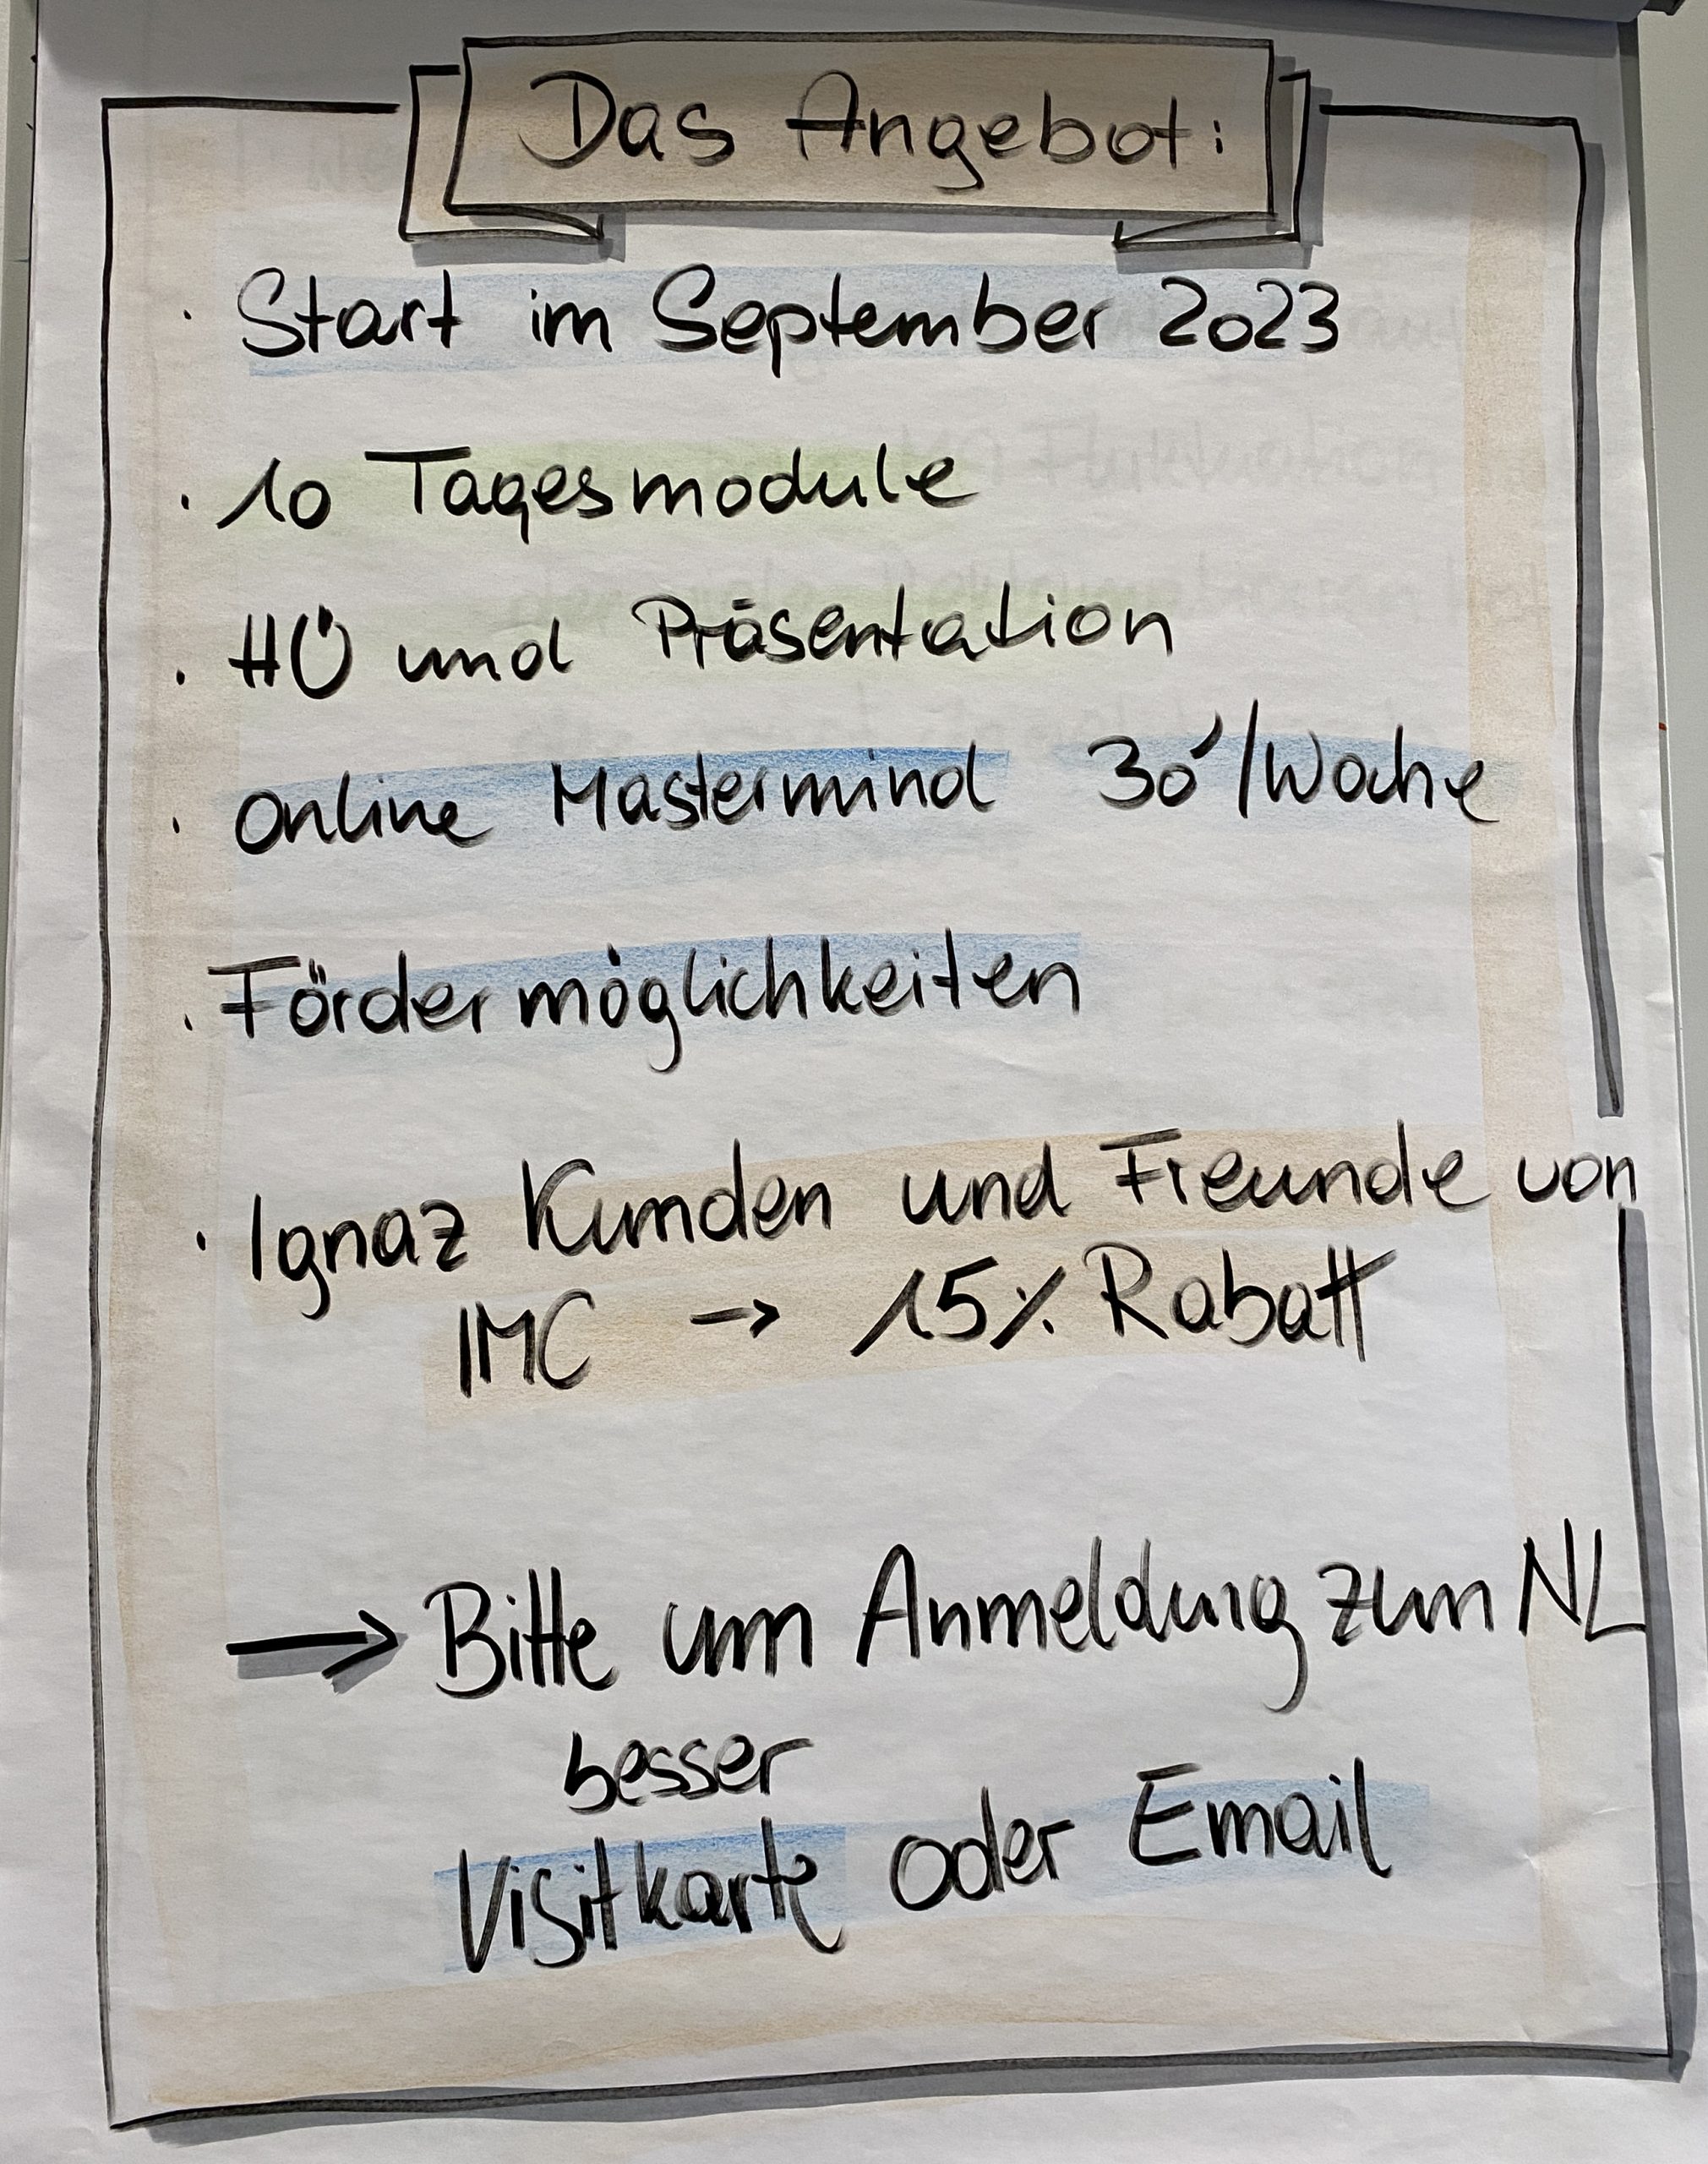 Das Angebot:
· Start im September 2023
· 10 Tagesmodule
· HÜ und Präsentation
· Online Mastermind 30´/Woche
· Fördermöglichkeiten
· Ignaz Kunden und Freunde von
IMC → 15% Rabatt
→ Bitte um Anmeldung zum NL
besser
Visitkarte oder Email